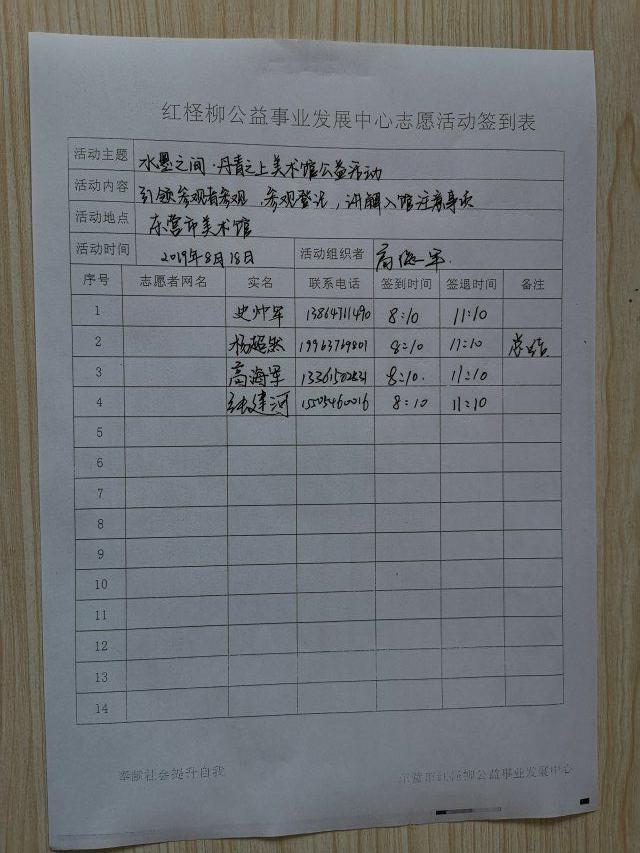 红柽柳公益事业发展中心志愿活动签到表
活动主题 水墨之间·丹青之上美术馆公益活动
活动内容 引领参观者参观，参观登记，讲解入馆注意事项
活动地点 东营市美术馆
活动时间 2019年8月18日 活动组织者 高海军
序号 志愿者网名 实名 联系电话 签到时间 签退时间 备注
1 史帅军 13864711490 8:10 11:10
2 杨超然 19963769801 8:10 11:10 总结
3 高海军 13361502831 8:10 11:10
4 张建河 1505460016 8:10 11:10
5
6
7
8
9
10
11
12
13
14
奉献社会提升自我 东营市红柽柳公益事业发展中心